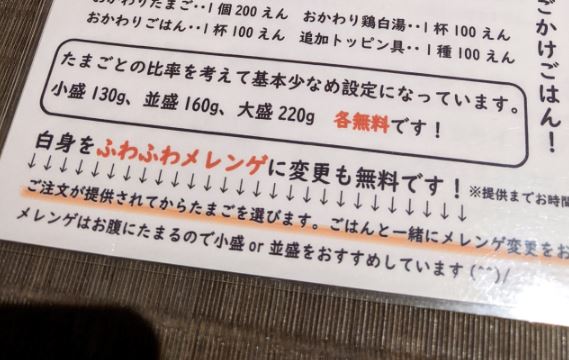 おかわりたまご‥1個200えん おかわり鶏白湯‥1杯100えん
おかわりごはん‥1杯100えん 追加トッピン具‥1種100えん
たまごとの比率を考えて基本少なめ設定になっています。
小盛130g、並盛160g、大盛220g 各無料です！
白身をふわふわメレンゲに変更も無料です！※提供までお時間
↓↓↓↓↓↓↓↓↓↓↓↓↓↓↓↓↓↓↓↓↓↓↓↓↓
ご注文が提供されてからたまごを選びます。ごはんと一緒にメレンゲ変更をお
メレンゲはお腹にたまるので小盛or並盛をおすすめしています(^^)/
ごかけごはん！